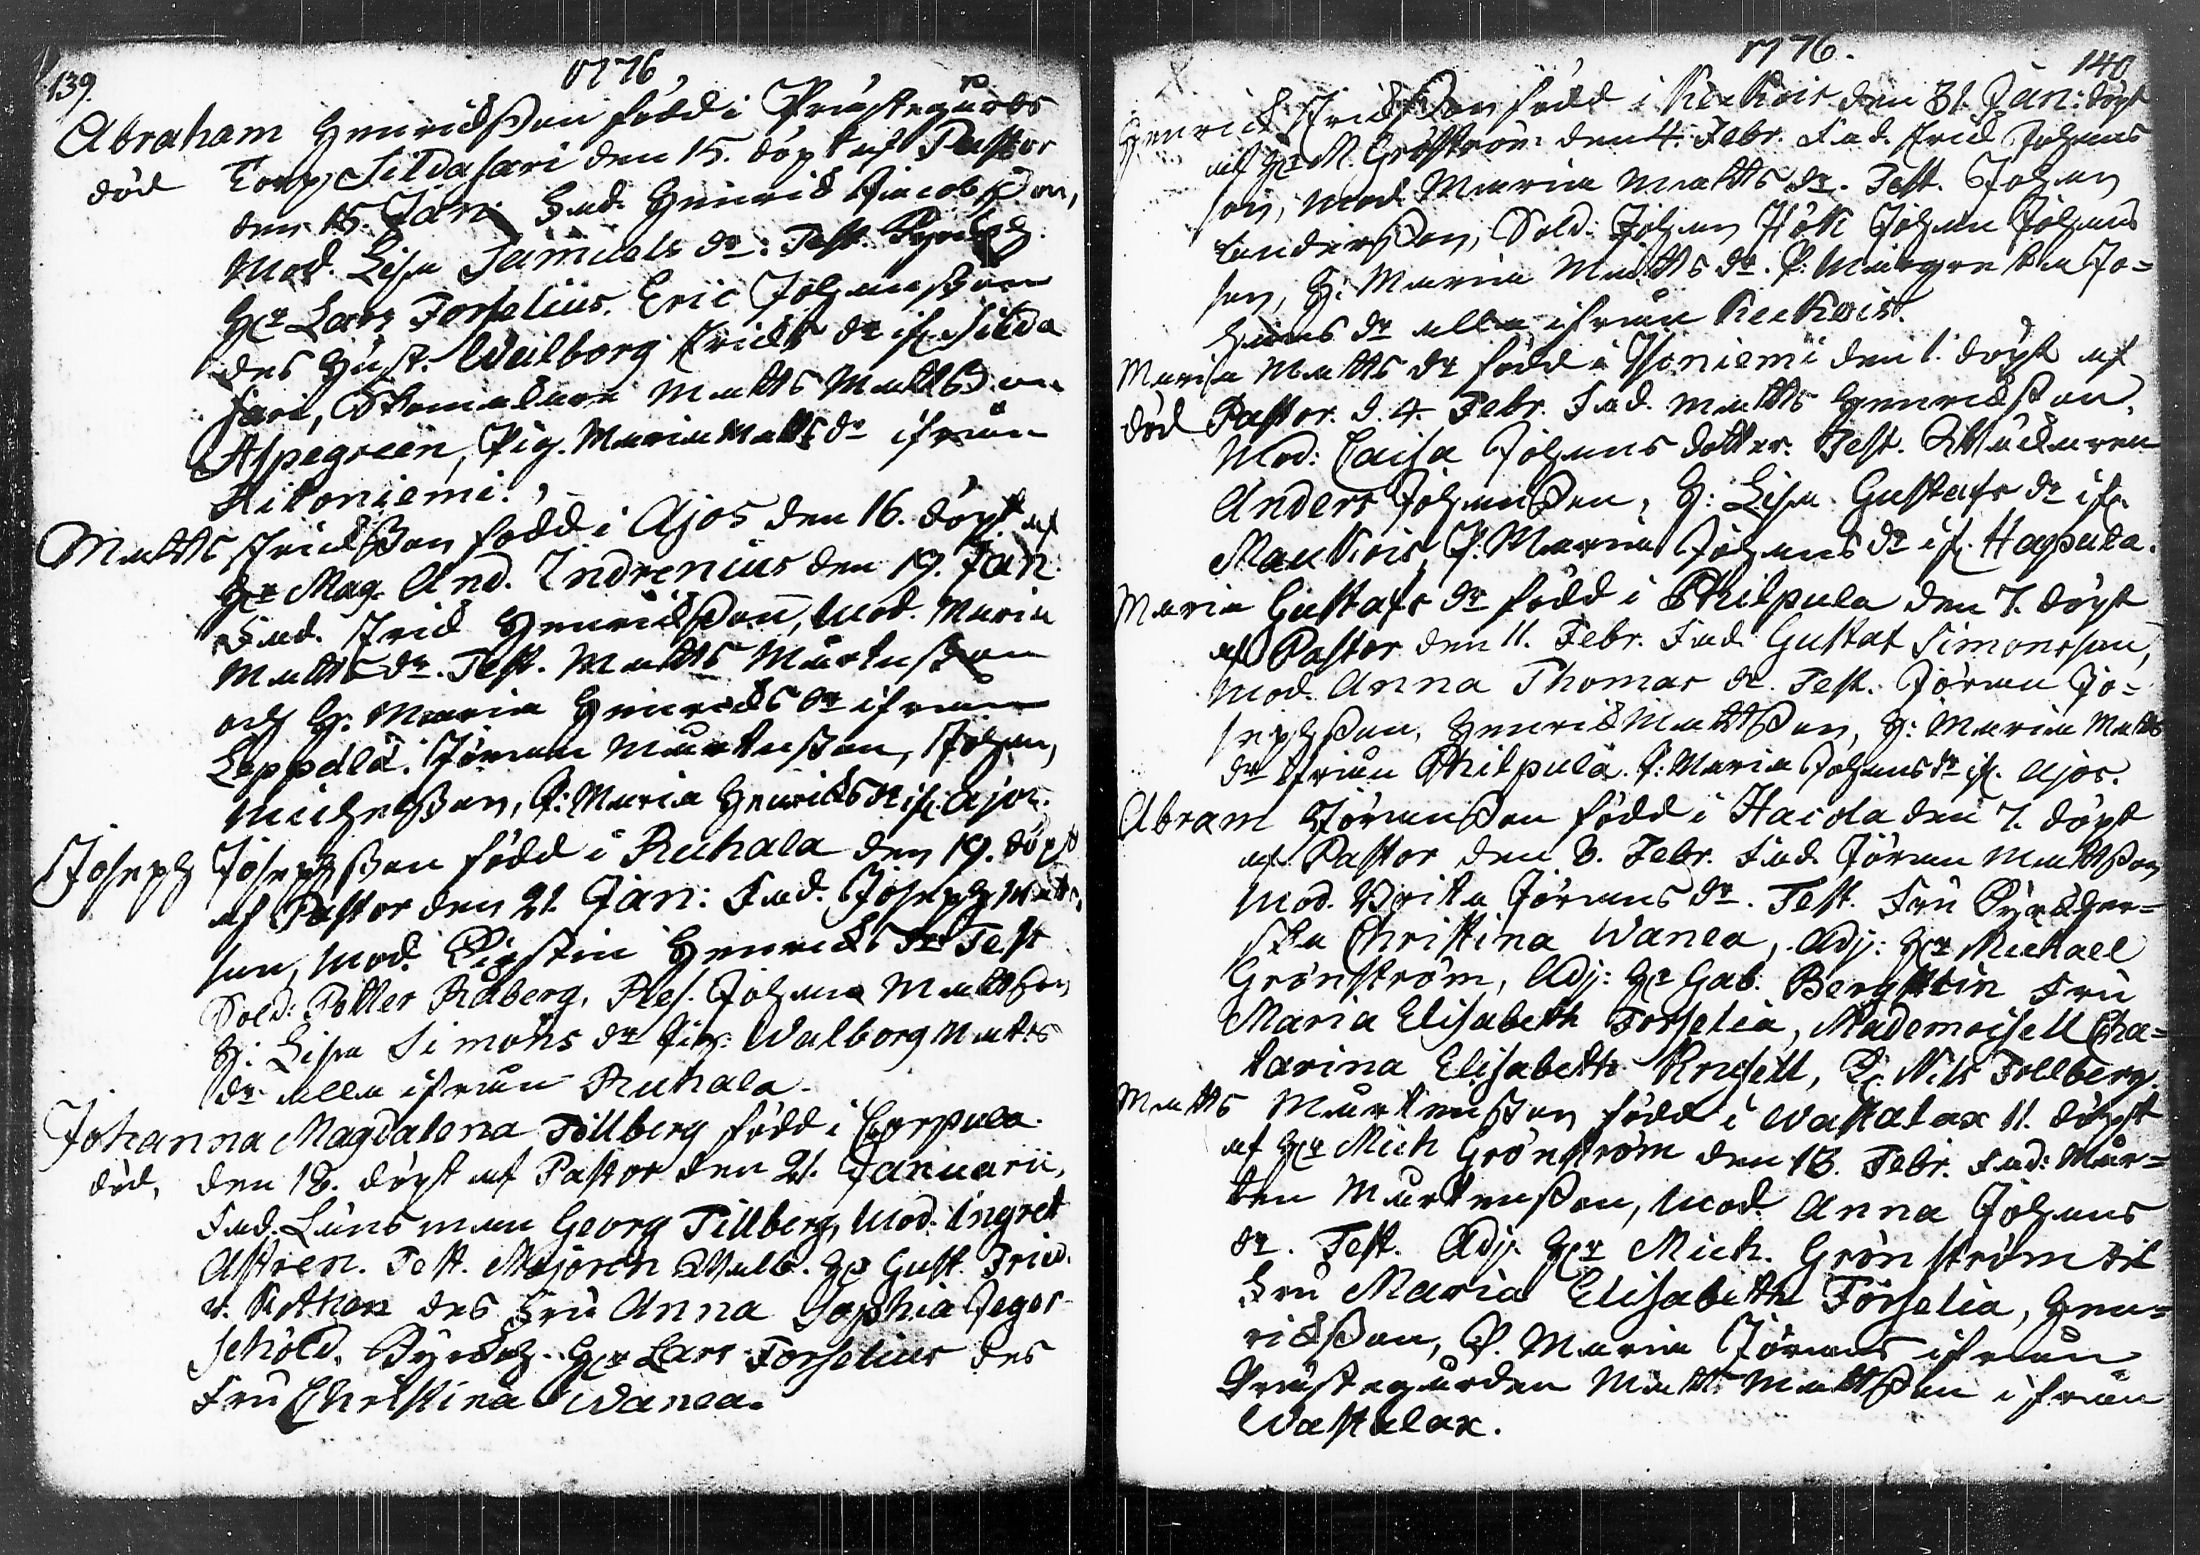 139.
1776
Abraham Henricksson född i Prästegårds
död Torp, Sildasari den 15. döpt af Pastor
den 15. Jan. Fad. Henrick Jacobsson,
Mod. Lisa Samuels dr: Test.
Hr Lars Forselius. Eric Johansson
des Hust. Walborg Erichs dr if. Silda
sari, Skomakare Matts Mattsson
Aspegreen, Pig. Maria Matts dr ifrån
Hitoniemi.
Matts Erichsson född i Ajos den 16. döpt af
Hr Mag. And. Indrenius den 19. Jan.
Fad. Erick Henricksson, Mod. Maria
Matts dr. Test. Matts Mårtensson
och H: Maria Henricks dr ifrån
Leppälä. Jöran Mårtensson, Johan
Michelsson, P: Maria Henricks dr if. Ajos.
Joseph Josephsson född i Ruhala den 19. döpt
af Pastor den 21. Jan: Fad. Joseph Matts
son, Mod. Kirstin Henricks dr Test
Sold: Petter Råberg, Res. Johan Mattsson
H: Lisa Simons dr Pig: Walborg Matts
dr alla ifrån Ruhala.
Johanna Magdalena Tillberg född i Corpula
död, den 18. döpt af Pastor den 21. Januarii,
Fad. Länsman Georg Tillberg, Mod. Ingret
Astren. Test. Majoren Walb. Hr Gust. Fried.
v. Kothen des Fru Anna Sophia Jeger
schöld. Kyrckh. Hr Lars Forselius des
Fru Christina Wanæa.
1776.
140
Henrich Erichsson född i Keekois den 31. Jan: döpt
af Hr M. Grönström den 4. Febr. Fad. Erick Johans
son, Mod. Maria Matts dr. Test. Johan
Andersson, Sold: Johan Höök Johan Johans
son, H: Maria Matts dr. P: Margreta Jo=
hans dr alla ifrån Keekois.
Maria Matts dr född i Isoniemi den 1. döpt af
död Pastor. d. 4. Febr. Fad. Matts Henricksson,
Mod: Caisa Johans dotter. Test.
Anders Johansson, H: Lisa Gustafs dr if.
Maukois, P: Maria Johans dr if. Hapula.
Maria Gustafs dr född i Philpula den 7. döpt
af Pastor den 11. Febr. Fad. Gustaf Simonsson,
Mod. Anna Thomas dr. Test. Jöran Jo=
sephsson, Henrick Mattsson, H: Maria Matts
dr ifrån Philpula. P: Maria Johans dr if. Ajos.
Abram Jöransson född i Hacola den 7. döpt
af Pastor den 8. Febr. Fad. Jöran Mattsson
Mod. Brita Jörans dr. Test. Fru Kyrckher=
ska Christina Wanæa, Adj: Hr Michael
Grönström, Adj: Hr Gab. Bergstén Fru
Maria Elisabeth Forselia, Mademoisell Cha=
tarina Elisabeth Krusell, Nils Tollberg.
Matts Mårtensson född i Wattalax 11. döpt
af Hr Mich Grönström den 18. Febr. Fad: Mår=
ten Mårtensson, Mod. Anna Johans
dr. Test. Adj. Hr Mich. Grönström
Fru Maria Elisabeth Forselia, Hen=
ricksson, P. Maria Jörans ifrån
Prästegården Matts Mattsson ifrån
Wattalax.